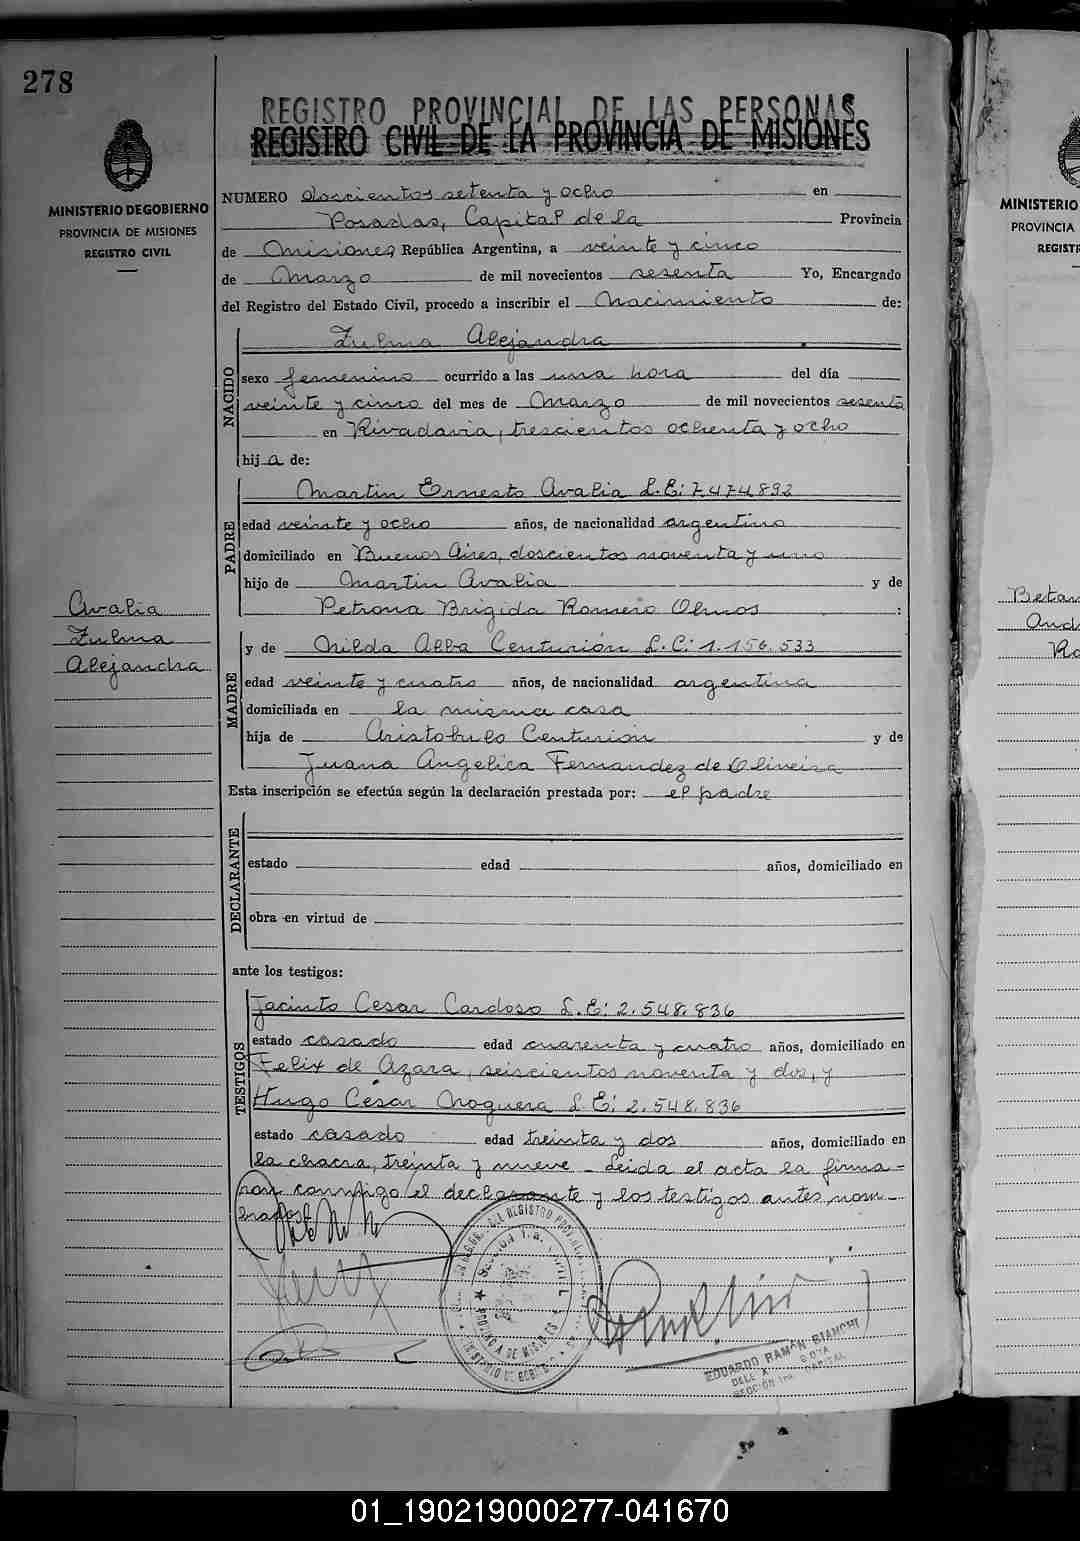 278
REGISTRO PROVINCIAL DE LAS PERSONAS
REGISTRO CIVIL DE LA PROVINCIA DE MISIONES
MINISTERIO DE GOBIERNO
PROVINCIA DE MISIONES
REGISTRO CIVIL
NUMERO doscientos setenta y ocho en
Posadas, Capital de la Provincia
de Misiones, República Argentina, a veinte y cinco
de Marzo de mil novecientos sesenta Yo, Encargado
del Registro del Estado Civil, procedo a inscribir el Nacimiento de:
NACIDO
Zulma Alejandra
sexo femenino ocurrido a las una hora del día
veinte y cinco del mes de Marzo de mil novecientos sesenta
en Rivadavia, trescientos ochenta y ocho
hija de:
PADRE
Martin Ernesto Avalia L.E: 7.474.892
edad veinte y ocho años, de nacionalidad argentino
domiciliado en Buenos Aires, doscientos noventa y uno
hijo de Martin Avalia y de
Petrona Brigida Romero Olmos :
Avalia
Zulma
Alejandra
MADRE
y de Nilda Alba Centurión L.C: 1.156.533
edad veinte y cuatro años, de nacionalidad argentina
domiciliada en la misma casa
hija de Aristobulo Centurión y de
Juana Angelica Fernandez de Oliveira
Esta inscripción se efectúa según la declaración prestada por: el padre
DECLARANTE
estado edad años, domiciliado en
obra en virtud de
ante los testigos:
TESTIGOS
Jacinto Cesar Cardoso L.E: 2.548.836
estado casado edad cuarenta y cuatro años, domiciliado en
Felix de Azara, seiscientos noventa y dos, y
Hugo César Noguera L.E: 2.548.836
estado casado edad treinta y dos años, domiciliado en
la chacra, treinta y nueve - Leida el acta la firma=
ron conmigo el declarante y los testigos antes nom-
brados
EDUARDO RAMON BIANCHI
SECCION 1ra. CAPITAL
MINISTERIO
PROVINCIA
REGIST
Betan
And
Ro
01_190219000277-041670